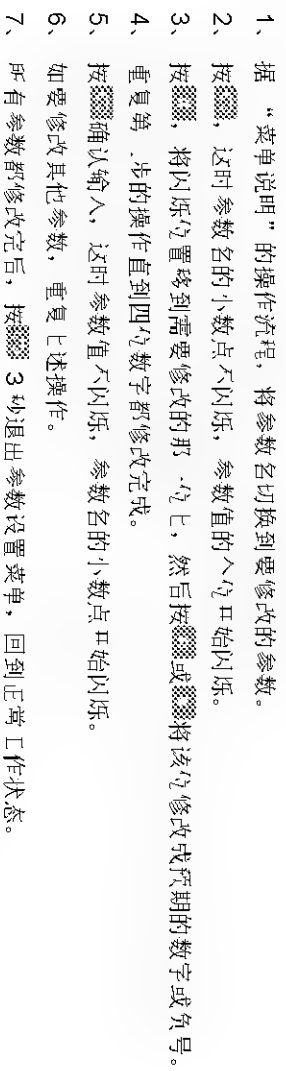 1、 据“菜单说明”的操作流程，将参数名切换到要修改的参数。
2、 按，这时参数名的小数点不闪烁，参数值的个位开始闪烁。
3、 按，将闪烁位置移到需要修改的那一位上，然后按或将该位修改成预期的数字或负号。
4、 重复第 步的操作直到四位数字都修改完成。
5、 按确认输入，这时参数值不闪烁，参数名的小数点开始闪烁。
6、 如要修改其他参数，重复上述操作。
7、 所有参数都修改完后，按 3 秒退出参数设置菜单，回到正常工作状态。